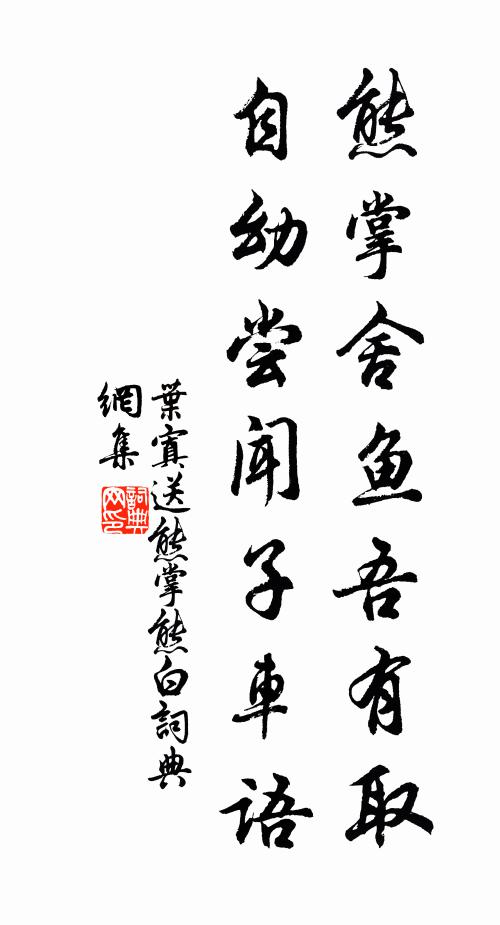 熊掌舍鱼吾有取
自幼尝闻子車語
葉寘送熊掌熊白詞典
網集
詞典
网印